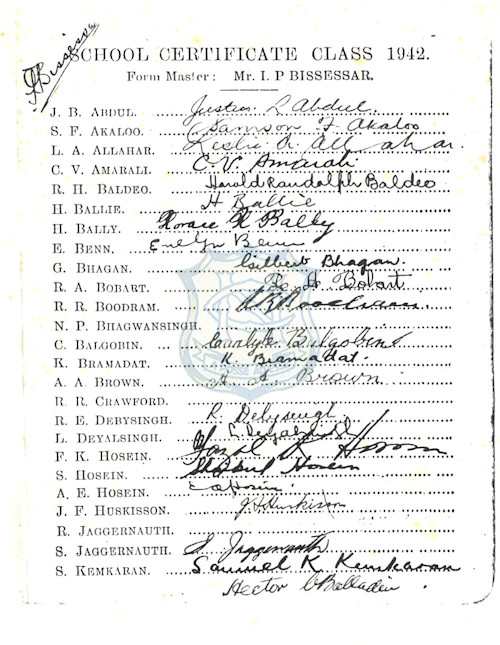 A Bissessar
SCHOOL CERTIFICATE CLASS 1942.
Form Master: Mr. I. P BISSESSAR.
J. B. ABDUL. Justin L Abdul.
S. F. AKALOO. Samson F Akaloo
L. A. ALLAHAR. Leslie A Allahar.
C. V. AMARALI. C. V. Amarali
R. H. BALDEO. Harold Randolph Baldeo
H. BALLIE. H Ballie
H. BALLY. Horace H Bally
E. BENN. Evelyn Benn
G. BHAGAN. Gilbert Bhagan.
R. A. BOBART. R. A. Bobart
R. R. BOODRAM. R R Boodram
N. P. BHAGWANSINGH.
C. BALGOBIN. Balgobin
K. BRAMADAT. K. Bramadat.
A. A. BROWN. A. A. Brown
R. R. CRAWFORD.
R. E. DEBYSINGH. R. Debysingh
L. DEYALSINGH. L Deyalsingh
F. K. HOSEIN. Fazal K Hosein
S. HOSEIN. Hosein
A. E. HOSEIN. Hosein
J. F. HUSKISSON. J F Huskisson
R. JAGGERNAUTH.
S. JAGGERNAUTH. S. Jaggernauth
S. KEMKARAN. Samuel K Kemkaran
Hector Balladin.